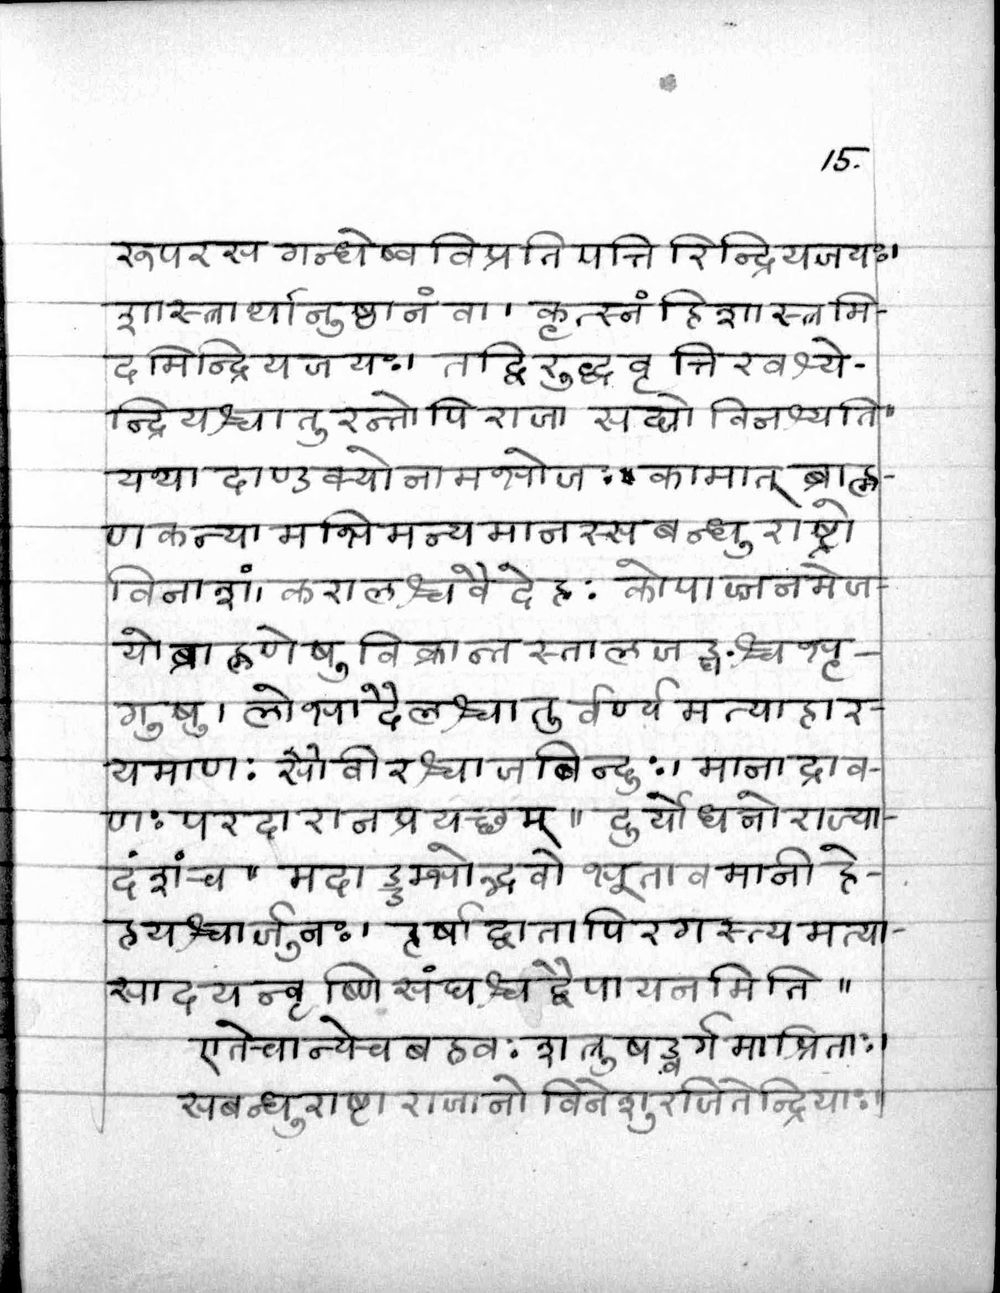 15.
रूपरस गन्धेष्व विप्रति पत्ति रिन्द्रियजयः।
शास्त्रार्थानुष्ठानं वा। कृत्स्नं हि शास्त्र मि-
द मिन्द्रिय जयः। तद्विरुद्ध वृत्ति रवश्ये-
न्द्रियश्चातुरन्तोपि राजा सद्यो विनश्यति॥
यथा दाण्डक्यो नाम भोजः कामात् ब्राह्म-
ण कन्या मभिमन्यमानस्स बन्धु राष्ट्रो
विनाशं। करालश्च वैदेहः कोपाज्जनमेज-
यो ब्राह्मणेषु विक्रान्त स्तालजङ्घश्च भृ-
गुषु। लोभादैलश्चातुर्वर्ण्य मत्याहार-
यमाणः सौवीरश्चाजबिन्दुः। मानाद्राव-
णः परदारानप्रयच्छम्॥ दुर्योधनो राज्या-
दंशं च॥ मदाड्डम्भोद्भवो भूतावमानी है-
हयश्चार्जुनः। हर्षाद्वातापि रगस्त्य मत्या-
सादयन्वृष्णि संघश्च द्वैपायनमिति॥
एतेचान्येच बहवः शत्रुषड्वर्गमाश्रिताः।
सबन्धुराष्ट्रा राजानो विनेशुरजितेन्द्रियाः॥